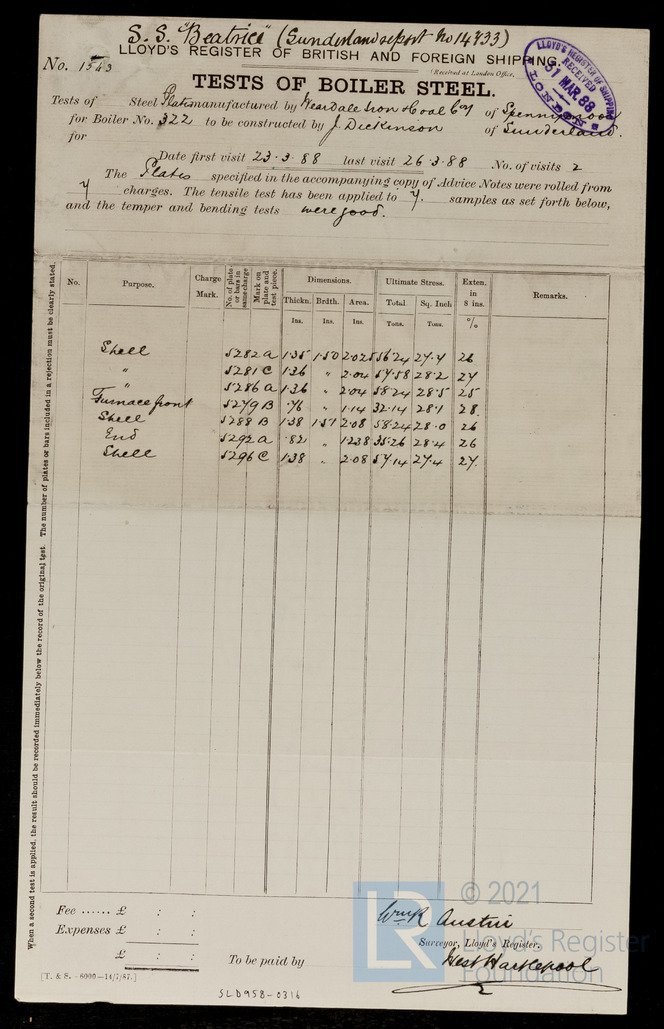 S. S. "Beatrice" (Sunderland report No 14733)
LLOYD'S REGISTER OF BRITISH AND FOREIGN SHIPPING.
No. 1543
(Received at London Office,
LLOYD'S REGISTER OF SHIPPING
RECEIVED
31 MAR 88
LONDON
TESTS OF BOILER STEEL.
Tests of Steel Plates manufactured by Weardale Iron & Coal Coy of Spennymoor
for Boiler No. 322 to be constructed by J. Dickinson of Sunderland.
for
Date first visit 23.3.88 last visit 26.3.88 No. of visits 2
The Plates specified in the accompanying copy of Advice Notes were rolled from
7 charges. The tensile test has been applied to 7. samples as set forth below,
and the temper and bending tests were good.
When a second test is applied, the result should be recorded immediately below the record of the original test. The number of plates or bars included in a rejection must be clearly stated.
No. Purpose. Charge Mark. No. of plate or bars in same charge Mark on plate and test piece. Dimensions. Ultimate Stress. Exten. in 8 ins. Remarks.
Thickn. Brdth. Area. Total. Sq. Inch
Ins. Ins. Ins. Tons. Tons. %
Shell 5282 A 1.35 1.50 2.025 56.24 27.7 26
" 5281 C 1.36 " 2.04 57.58 28.2 27
" 5286 A 1.36 " 2.04 58.24 28.5 25
Furnace front 5279 B .76 " 1.14 32.14 28.1 28.
Shell 5288 B 1.38 1.51 2.08 58.24 28.0 26
End 5292 A .821 " 1.238 35.26 28.4 26
Shell 5296 C 1.38 " 2.08 57.14 27.4 27.
Fee ...... £ : :
Expenses £ : :
£ : :
To be paid by
Wm R Austin
Surveyor, Lloyd's Register.
West Hartlepool
[T. & S.—6000—14/7/87.]
SLD958-0316
© 2021
LR
Lloyd's Register
Foundation